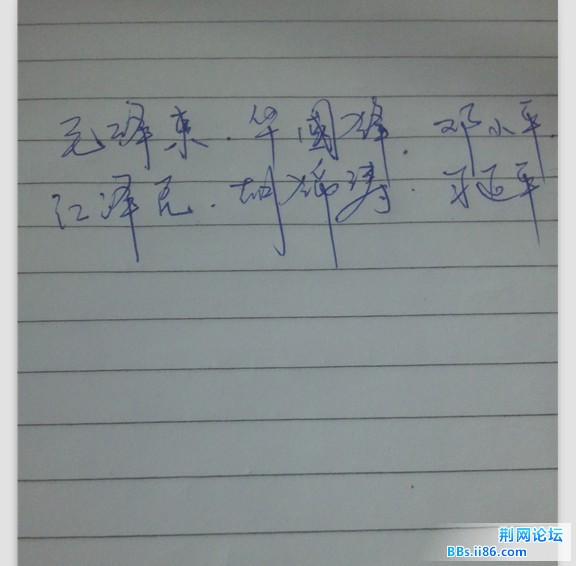 毛泽东.华国锋.邓小平.
江泽民.胡锦涛.习近平
荆网论坛
BBs.ii86.com